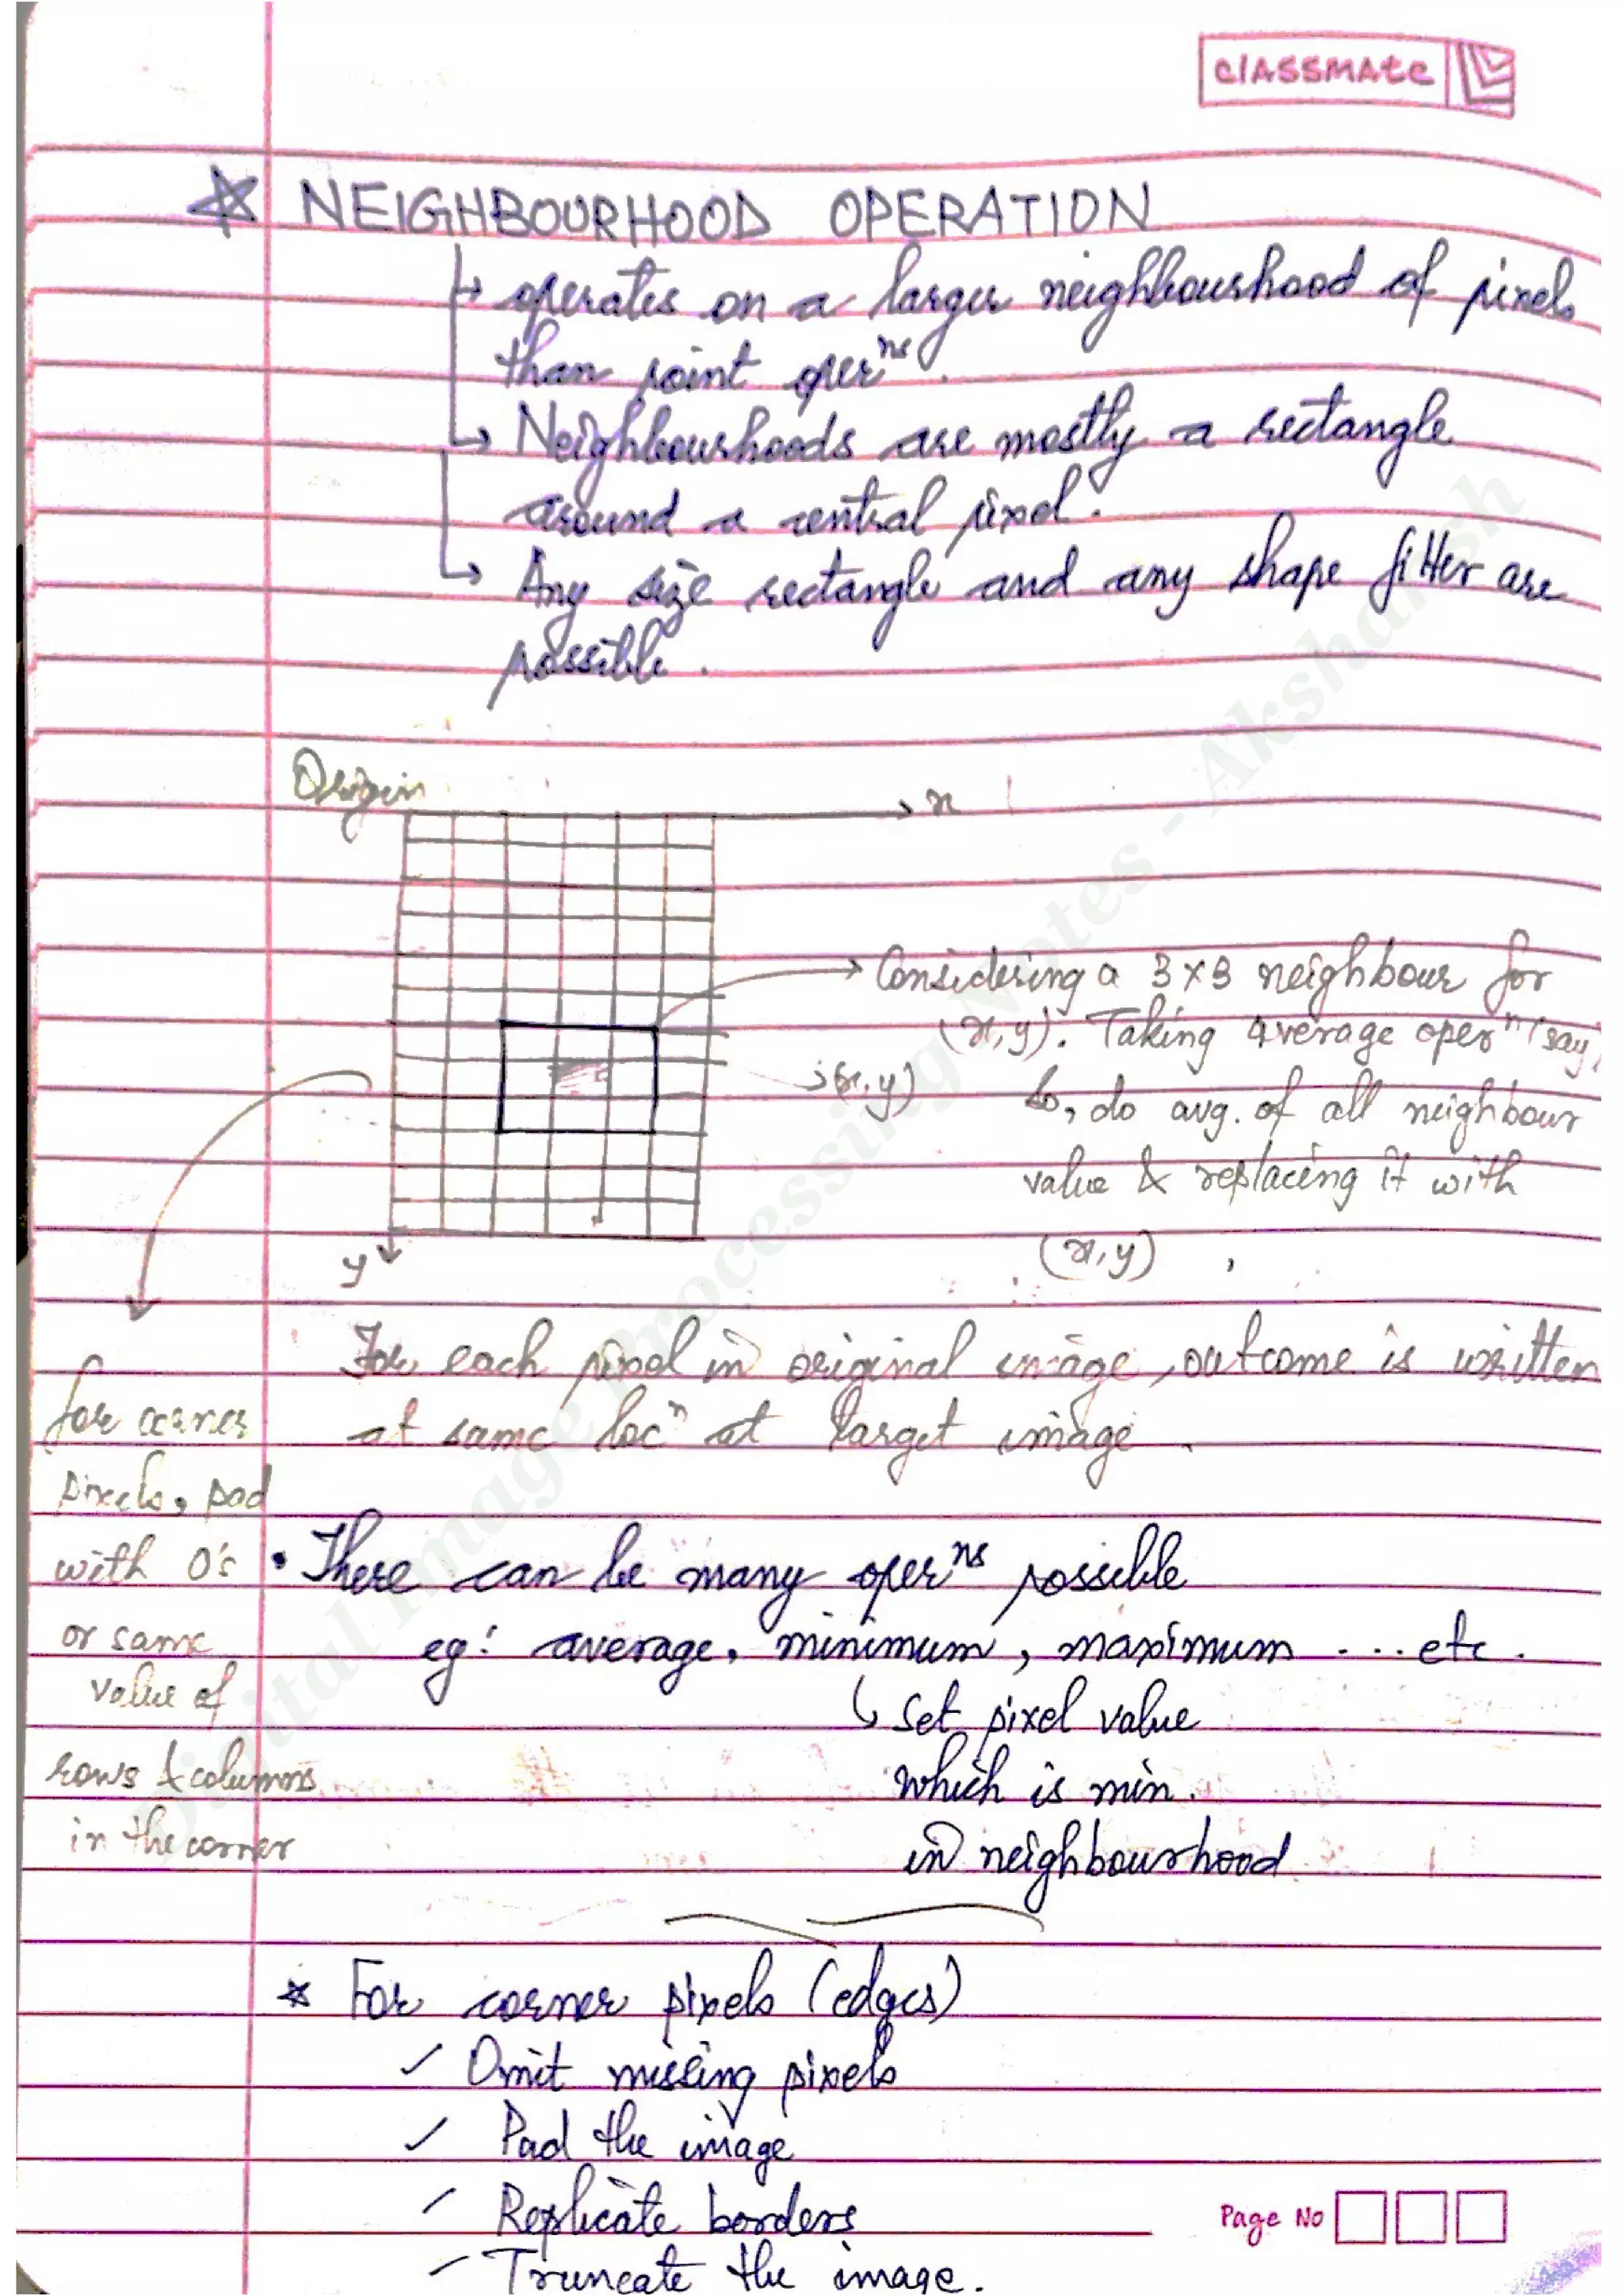 classmate
☆ NEIGHBOURHOOD OPERATION
↳ operates on a larger neighbourhood of pixels
than point operⁿˢ.
↳ Neighbourhoods are mostly a rectangle
around a central pixel.
↳ Any size rectangle and any shape filter are
possible.
Origin
→ x
→ Considering a 3×3 neighbour for
(x,y). Taking average operⁿ (say)
(x,y)
So, do avg. of all neighbour
value & replacing it with
(x,y)
y
For each pixel in original image, outcome is written
at same locⁿ at target image.
for corner
pixels, pad
with 0's
or same
value of
rows & columns
in the corner
• There can be many operⁿˢ possible
eg: average, minimum, maximum ...etc.
↳ Set pixel value
which is min.
in neighbourhood
* For corner pixels (edges)
✓ Omit missing pixels
✓ Pad the image
✓ Replicate borders
✓ Truncate the image.
Page No
Digital Image Processing Notes - Aksharansh